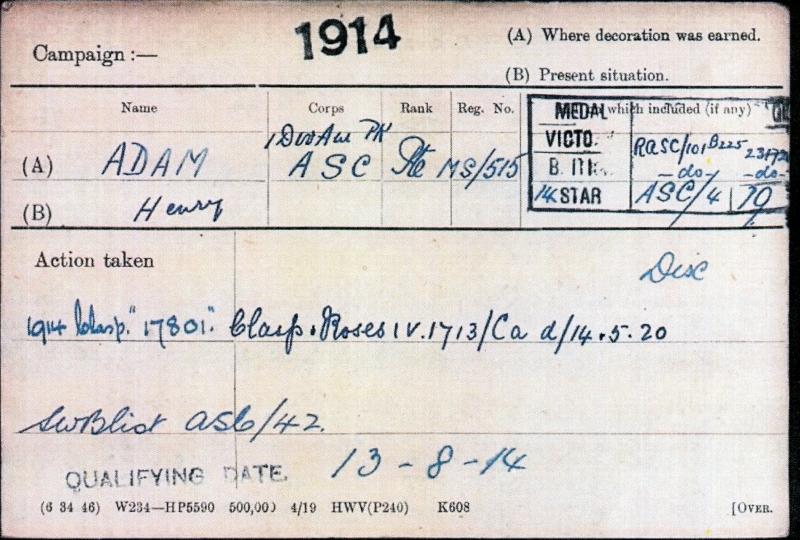 1914
(A) Where decoration was earned.
Campaign :—
(B) Present situation.
Name Corps Rank Reg. No. MEDAL which included (if any)
1 Div Am PK
VICTO RASC/101 B225
(A) ADAM ASC Pte MS/515
B. ITI -do- -do-
(B) Henry
14 STAR ASC/4 79
Action taken
Disc
1914 Clasp "17801" Clasp & Roses IV.1713/Ca d/14.5.20
SWB list ASC/42.
QUALIFYING DATE. 13-8-14
(6 34 46) W234—HP5590 500,000 4/19 HWV(P240) K608 [OVER.